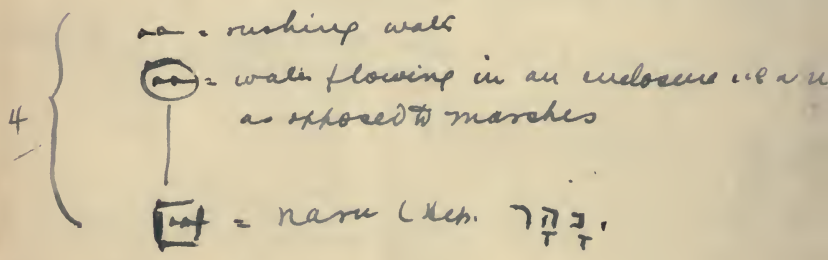 = rushing water
= water flowing in an enclosure i.e a
as opposed to marshes
4
= naru (Heb. נָהָר.